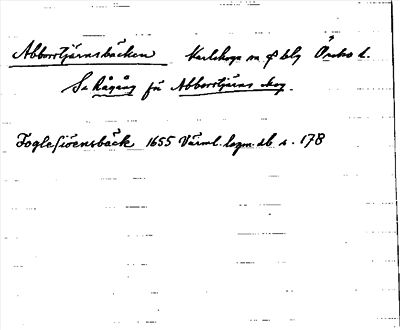 Abborrtjärnsbäcken Karlskoga sn o bsg Örebro l.
Se Rågång för Abborrtjärns skog.
Foglesiöensbäck 1655 Värml. lagm. db s. 178